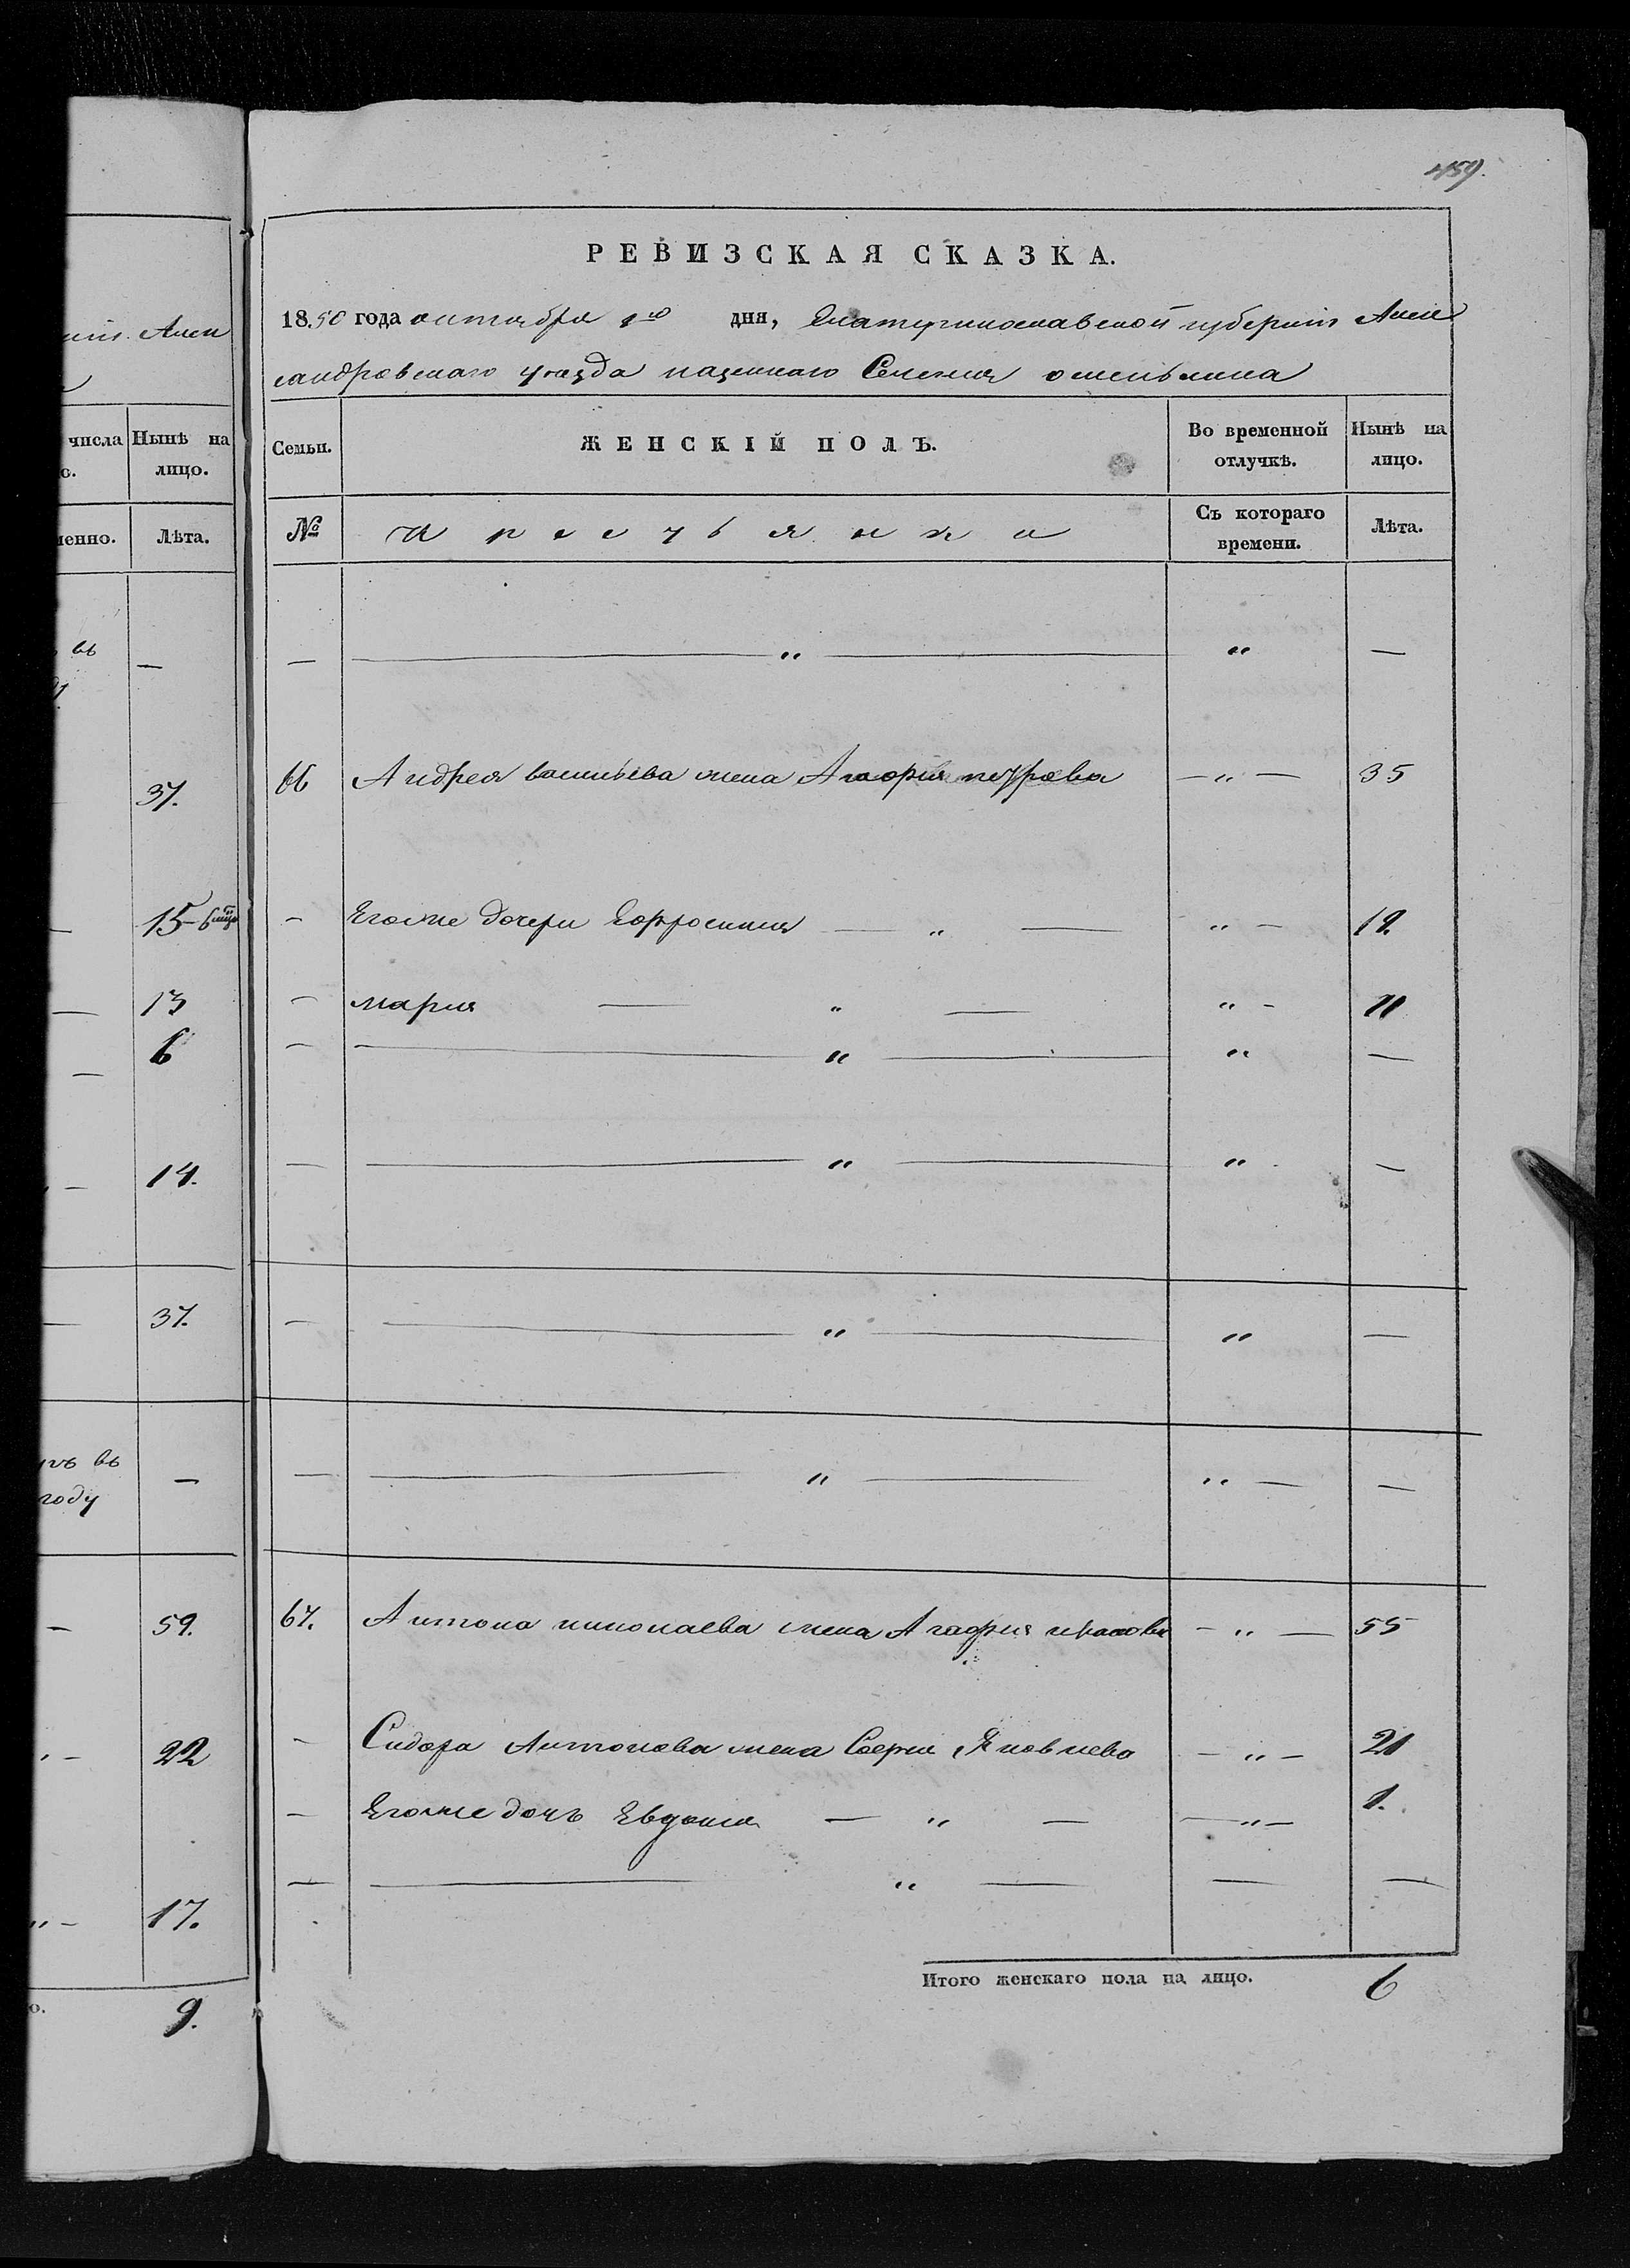 459.
РЕВИЗСКАЯ СКАЗКА.
1850 года октября 1го дня, Екатеринославской губерніи Алек
сандровскаго уѣзда казеннаго Селенія Омельника
Семьи.
ЖЕНСКІЙ ПОЛЪ.
Во временной отлучкѣ.
Нынѣ на лицо.
№
Крестьянки
Съ котораго времени.
Лѣта.
— — „ — „ —
66 Андрея Васильева жена Агафія Петрова — „ — 35
— Егоже дочери Ефросинія — „ — „ — 19.
— Марія — „ — „ — 11
— — „ — „ —
— — „ — „ —
— — „ — „ —
— — „ — „ — —
67. Антона Николаева жена Агафия — „ — 55
— Сидора Антонова жена Яковлева — „ — 21
— Егоже дочь Евдокия — „ — — „ — 1.
— — „ — — —
Итого женскаго пола на лицо. 6
Алек
числа
Нынѣ на
лицо.
Лѣта.
въ —
37.
15-6
— 13
— 6
— 14.
— 37.
въ
году —
— 59.
— 22
„ — 17.
9.